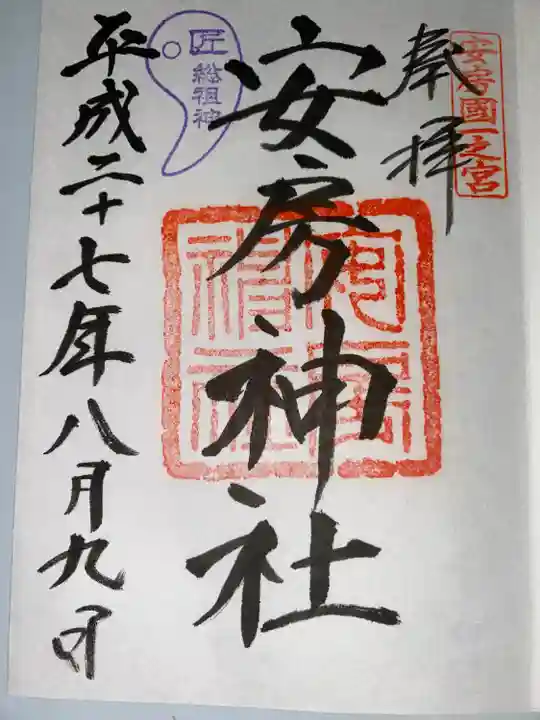 安房國一之宮
奉拝
安房神社
匠
総祖神
平成二十七年八月九日